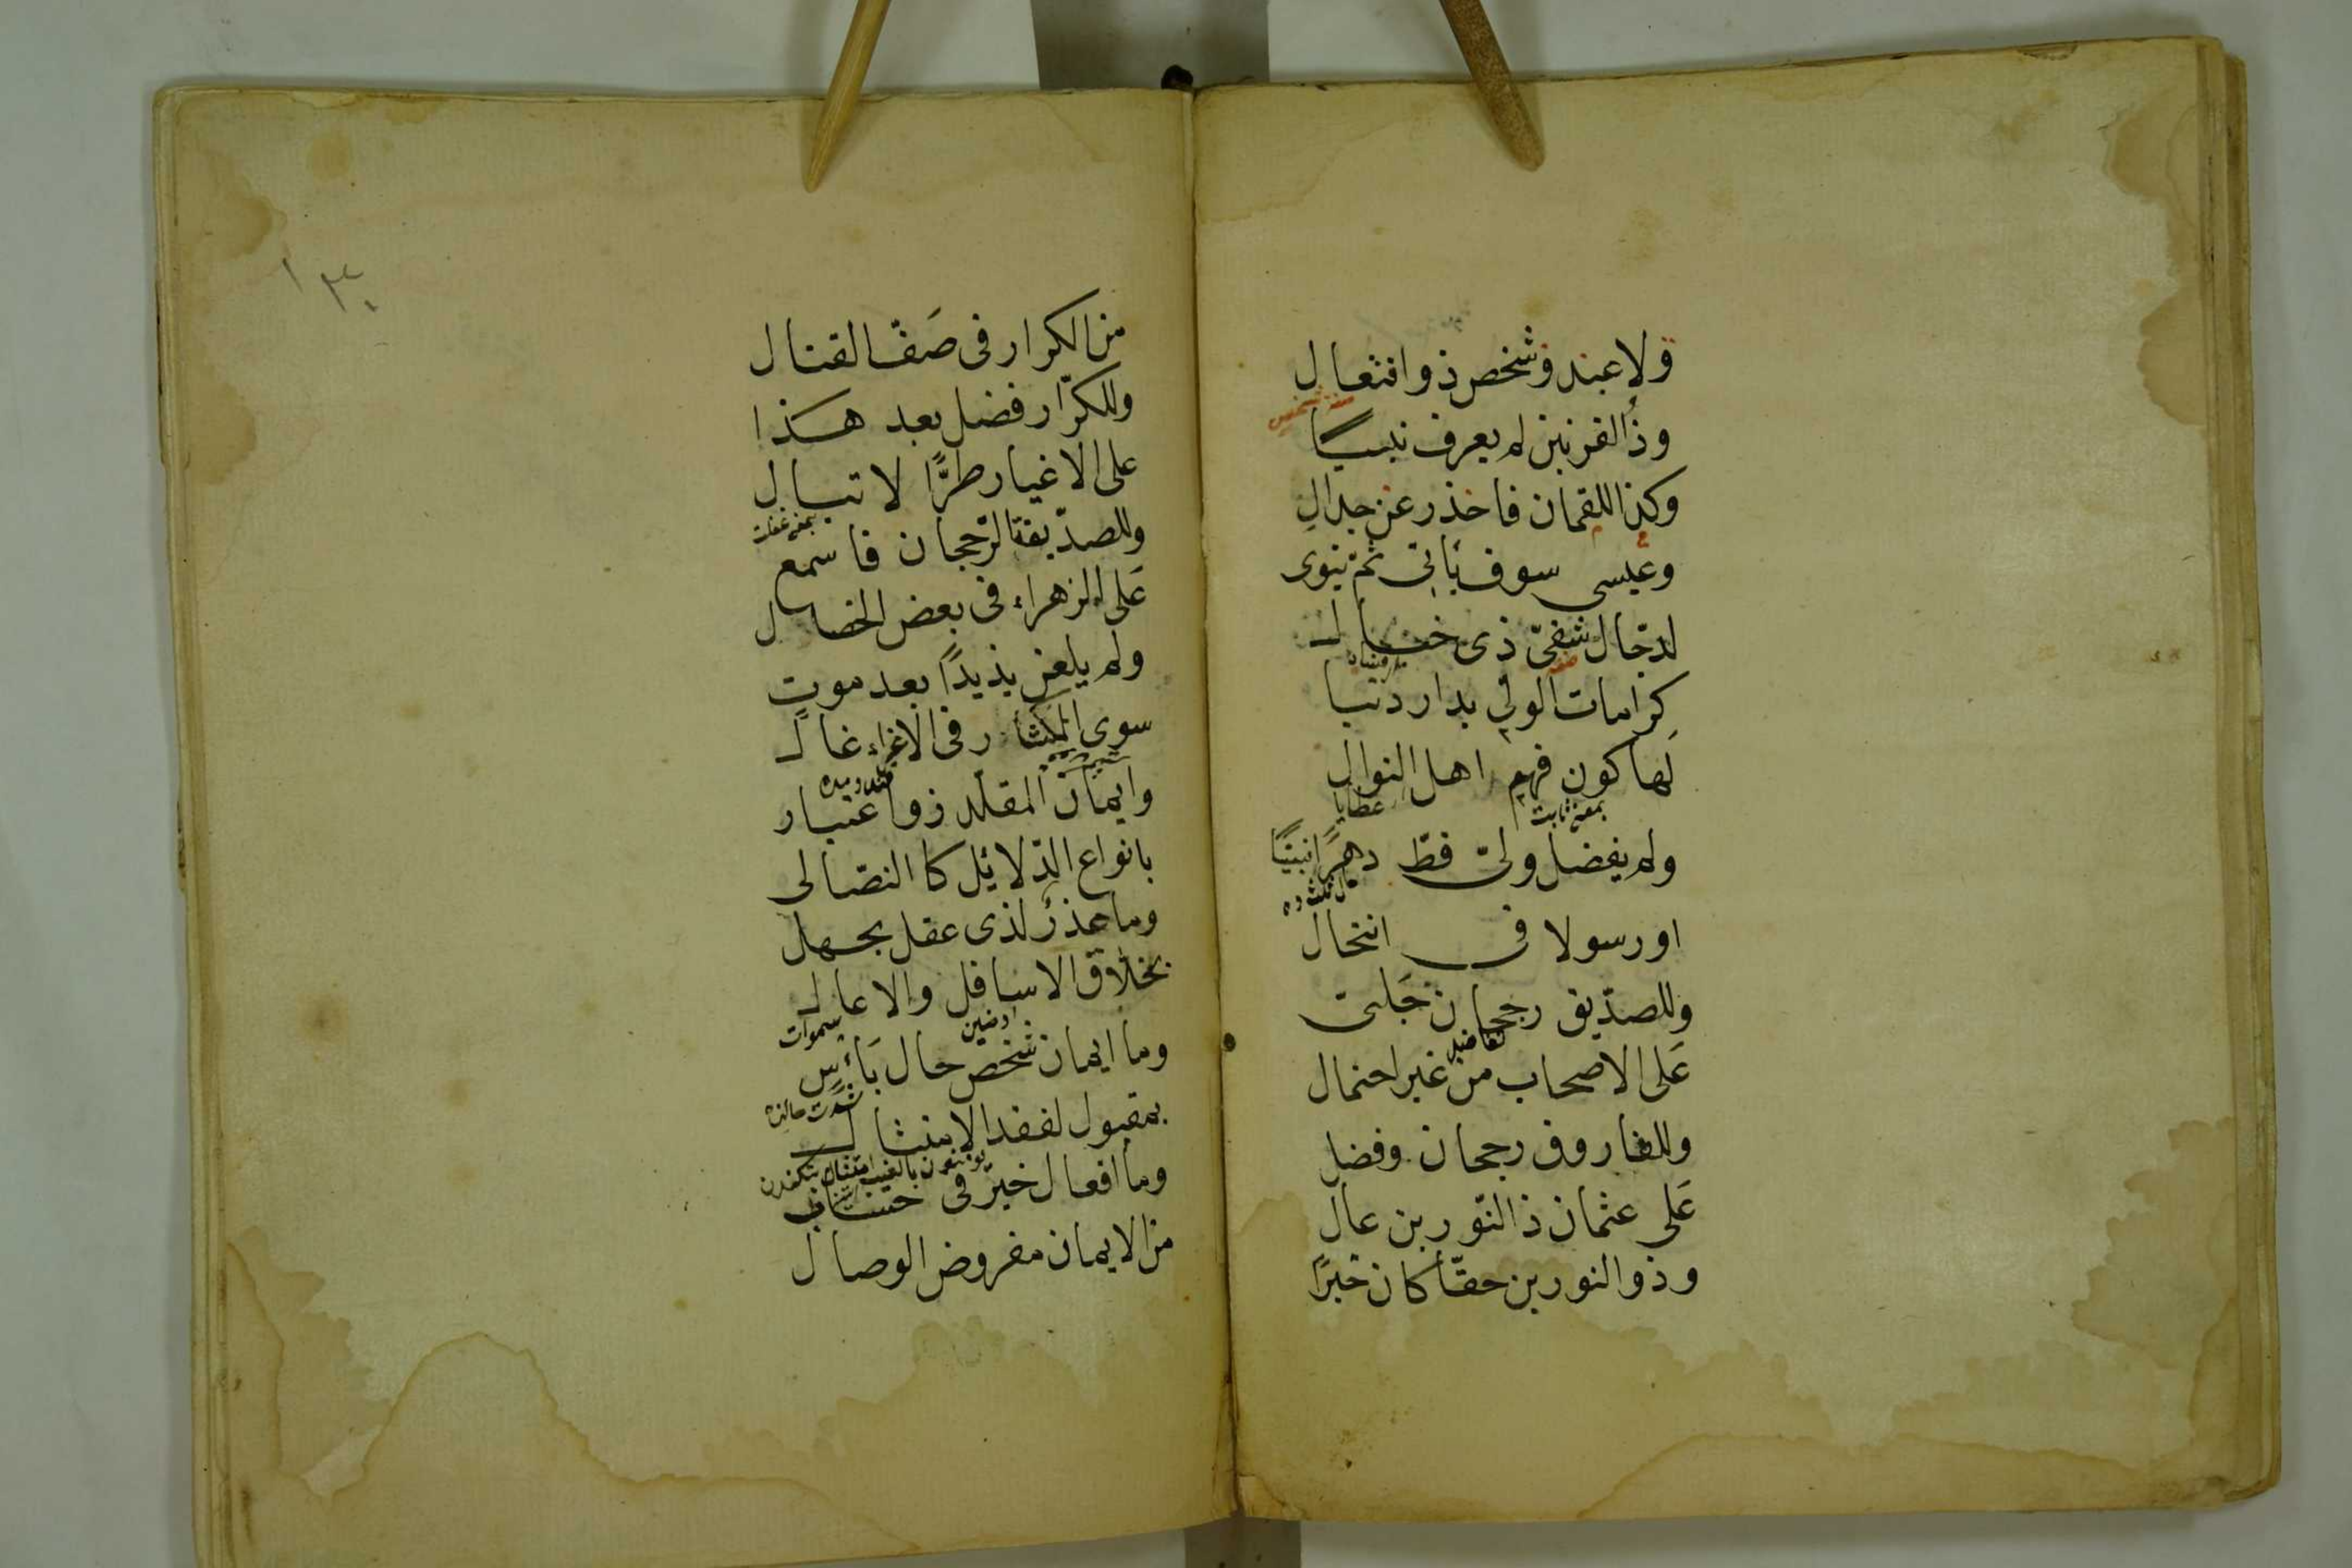 ولا عبد وشخص ذو افتعال
وذو القرنين لم يعرف نبيا
وكذا اللقمان فاحذر عن جدال
وعيسى سوف يأتى ثم يتوى
لدجال شقى ذى خبال
كرامات الولى بدار دنيا
لها كون فهم اهل النوال
بمعنى ثابت
عطايا
ولم يفضل ولى قط دهرا نبيا
او رسولا فى انتحال
وللصديق رجحان جلى
على الاصحاب من غير احتمال
وللفاروق رجحان وفضل
على عثمان ذالنورين عال
وذو النورين حقا كان خيرا
١٣٠
من الكرار فى صف القتال
وللكرار فضل بعد هذا
على الاغيار طرا لا تبال
وللصديقة الرجحان فاسمع
على الزهراء فى بعض الخصال
ولم يلعن يذيدا بعد موت
سوى المكثار فى الاغراء غال
وايمان المقلد ذو اعتبار
بانواع الدلائل كا النصالى
وما عذر لذى عقل بجهل
بخلاق الاسافل والاعال
سموات
وما ايمان شخص حال بأس
بمقبول لفقد الامتثال
وما افعال خير فى حساب
من الايمان مفروض الوصال